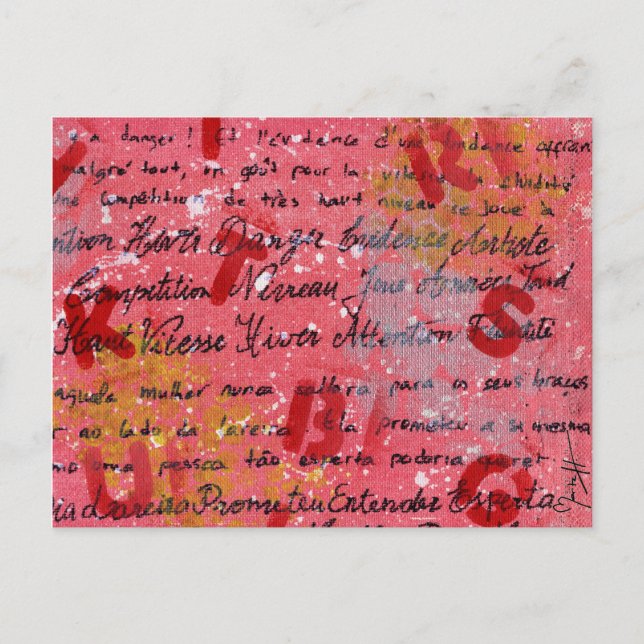 danger ! Et l'évidence d'une tendance
malgré tout, un goût pour la vitesse la fluidité
une compétition de très haut niveau se joue à
Hiver Danger Evidence Artiste
Compétition Niveau Joue Année Tard
Haut Vitesse Hiver Attention Fluidité
aquela mulher nunca saltara para os seus braços
ao lado da lareira Ela prometeu a si mesma
uma pessoa tão esperta poderia querer
Lareira Prometeu Entender Esperta
R
K T S
B
U O